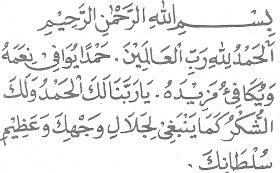 بِسْمِ اللهِ الرَّحْمٰنِ الرَّحِيْمِ
اَلْحَمْدُ لِلّٰهِ رَبِّ الْعَالَمِيْنَ. حَمْدًا يُوَافِيْ نِعَمَهُ
وَيُكَافِئُ مَزِيْدَهُ. يَا رَبَّنَا لَكَ الْحَمْدُ وَلَكَ
الشُّكْرُ كَمَا يَنْبَغِيْ لِجَلَالِ وَجْهِكَ وَعَظِيْمِ
سُلْطَانِكَ.